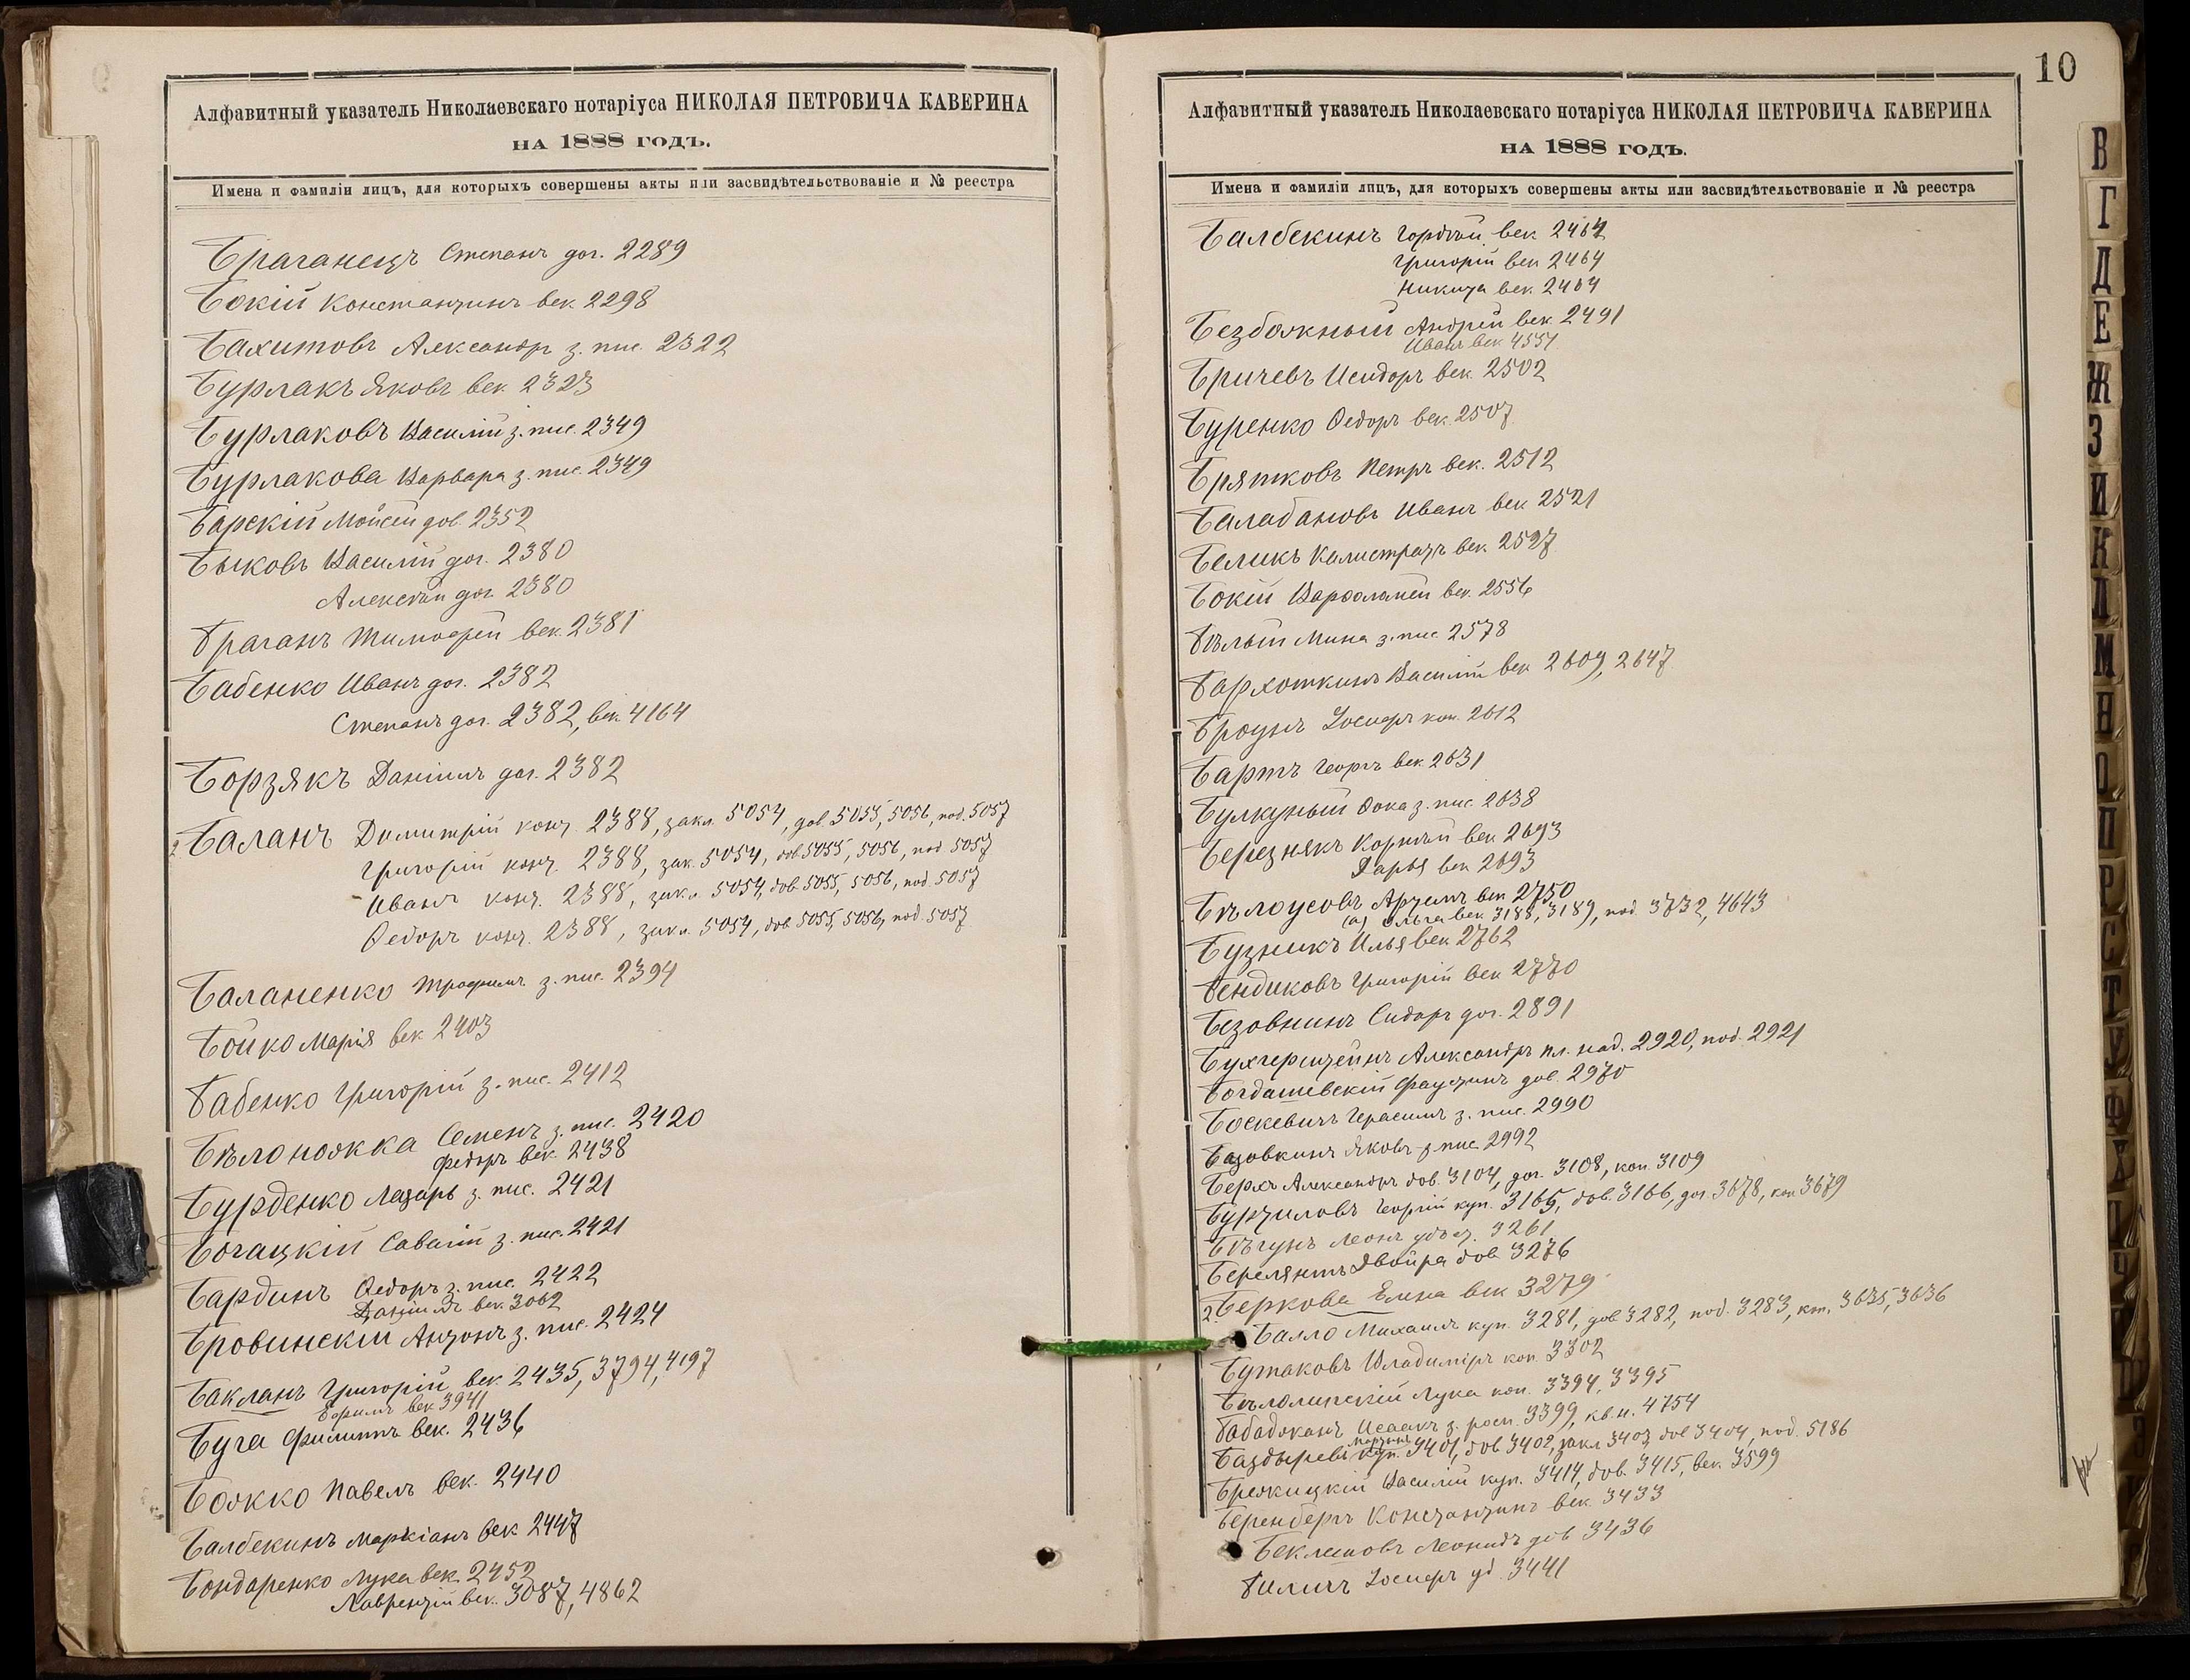 Алфавитный указатель Николаевскаго нотаріуса НИКОЛАЯ ПЕТРОВИЧА КАВЕРИНА
НА 1888 ГОДЪ.
Имена и фамиліи лицъ, для которыхъ совершены акты или засвидѣтельствованіе и № реестра
Браганецъ Степанъ дог. 2289
Бокій Константинъ век. 2298
Бахитовъ Александръ з. пис. 2322
Бурлакъ Яковъ век. 2323
Бурлаковъ Василій з. пис. 2349
Бурлакова Варвара з. пис. 2349
Барскій Мойсей дов. 2352
Быковъ Василій дог. 2380
Алексѣй дог. 2380
Браганъ Тимофей век. 2381
Бабенко Иванъ дог. 2382
Степанъ дог. 2382, век. 4164
Борзякъ Даніилъ дог. 2382
Баланъ Димитрій конт. 2388, закл. 5054, дов. 5055, 5056, под. 5057
Григорій конт. 2388, зак. 5054, дов. 5055, 5056, под. 5057
Иванъ конт. 2388, закл. 5054, дов. 5055, 5056, под. 5057
Ѳедоръ конт. 2388, закл. 5054, дов. 5055, 5056, под. 5057
Баланенко Трофимъ з. пис. 2394
Бойко Марія век. 2403
Бабенко Григорій з. пис. 2412
Бѣлоножка Семенъ з. пис. 2420
Федоръ век. 2438
Бурденко Лазарь з. пис. 2421
Богацкій Саватій з. пис. 2421
Бардинъ Ѳедоръ з. пис. 2422
Даніилъ век. 3062
Бровинскій Антонъ з. пис. 2424
Бакланъ Григорій век. 2435, 3794, 4197
Ефимъ век. 3941
Буга Филиппъ век. 2436
Божко Павелъ век. 2440
Балбекинъ Маркіанъ век. 2447
Бондаренко Лука век. 2452
Лаврентій век. 3087, 4862
10
Алфавитный указатель Николаевскаго нотаріуса НИКОЛАЯ ПЕТРОВИЧА КАВЕРИНА
НА 1888 ГОДЪ.
Имена и фамиліи лицъ, для которыхъ совершены акты или засвидѣтельствованіе и № реестра
Балбекинъ Гордѣй век. 2464
Григорій век. 2464
Никита век. 2464
Безбожный Андрей век. 2491
Иванъ век. 4551
Бричевъ Исидоръ век. 2502
Буренко Ѳедоръ век. 2507
Брятковъ Петръ век. 2512
Балабановъ Иванъ век. 2521
Беликъ Калистратъ век. 2527
Бокій Варфоломей век. 2556
Бѣлый Мина з. пис. 2578
Бархоткинъ Василій век. 2609, 2647
Броунъ Іосифъ коп. 2612
Бартъ Георгъ век. 2631
Булкутый Фока з. пис. 2638
Березнякъ Корнѣй век. 2693
Дарья век. 2693
Бѣлоусовъ Артемъ век. 2750
(а) Ольга век. 3188, 3189, под. 3732, 4643
Бузникъ Илья век. 2762
Бендиковъ Григорій век. 2770
Безовнинъ Сидоръ дог. 2891
Бухгерштейнъ Александръ пл. над. 2920, под. 2921
Богдашевскій Фаустинъ дов. 2970
Боскевичъ Герасимъ з. пис. 2990
Базовкинъ Яковъ з. пис. 2992
Берхъ Александръ дов. 3104, дог. 3108, коп. 3109
Бурчиловъ Георгій куп. 3165, дов. 3166, дог. 3678, коп. 3679
Бѣгунъ Леонъ 3261
Берелянтъ Двойра дов. 3276
Беркова Елена век. 3279
Балло Михаилъ куп. 3281, дов. 3282, под. 3283, кт. 3635, 3636
Бутаковъ Владиміръ коп. 3302
Бѣлолипскій Лука коп. 3394, 3395
Бабаджанъ Исаакъ з. росп. 3399, кв. и. 4754
Баздыревъ Мартынъ куп. 3401, дов. 3402, закл. 3403, дов. 3404, под. 5186
Брежицкій Василій куп. 3414, дов. 3415, век. 3599
Беренбергъ Константинъ век. 3433
Беклешовъ Леонидъ дов. 3436
Билигъ Іосифъ уд. 3441
В
Г
Д
Е
Ж
З
И
К
Л
М
Н
О
П
Р
С
Т
У
Ф
Х
Ц
Ч